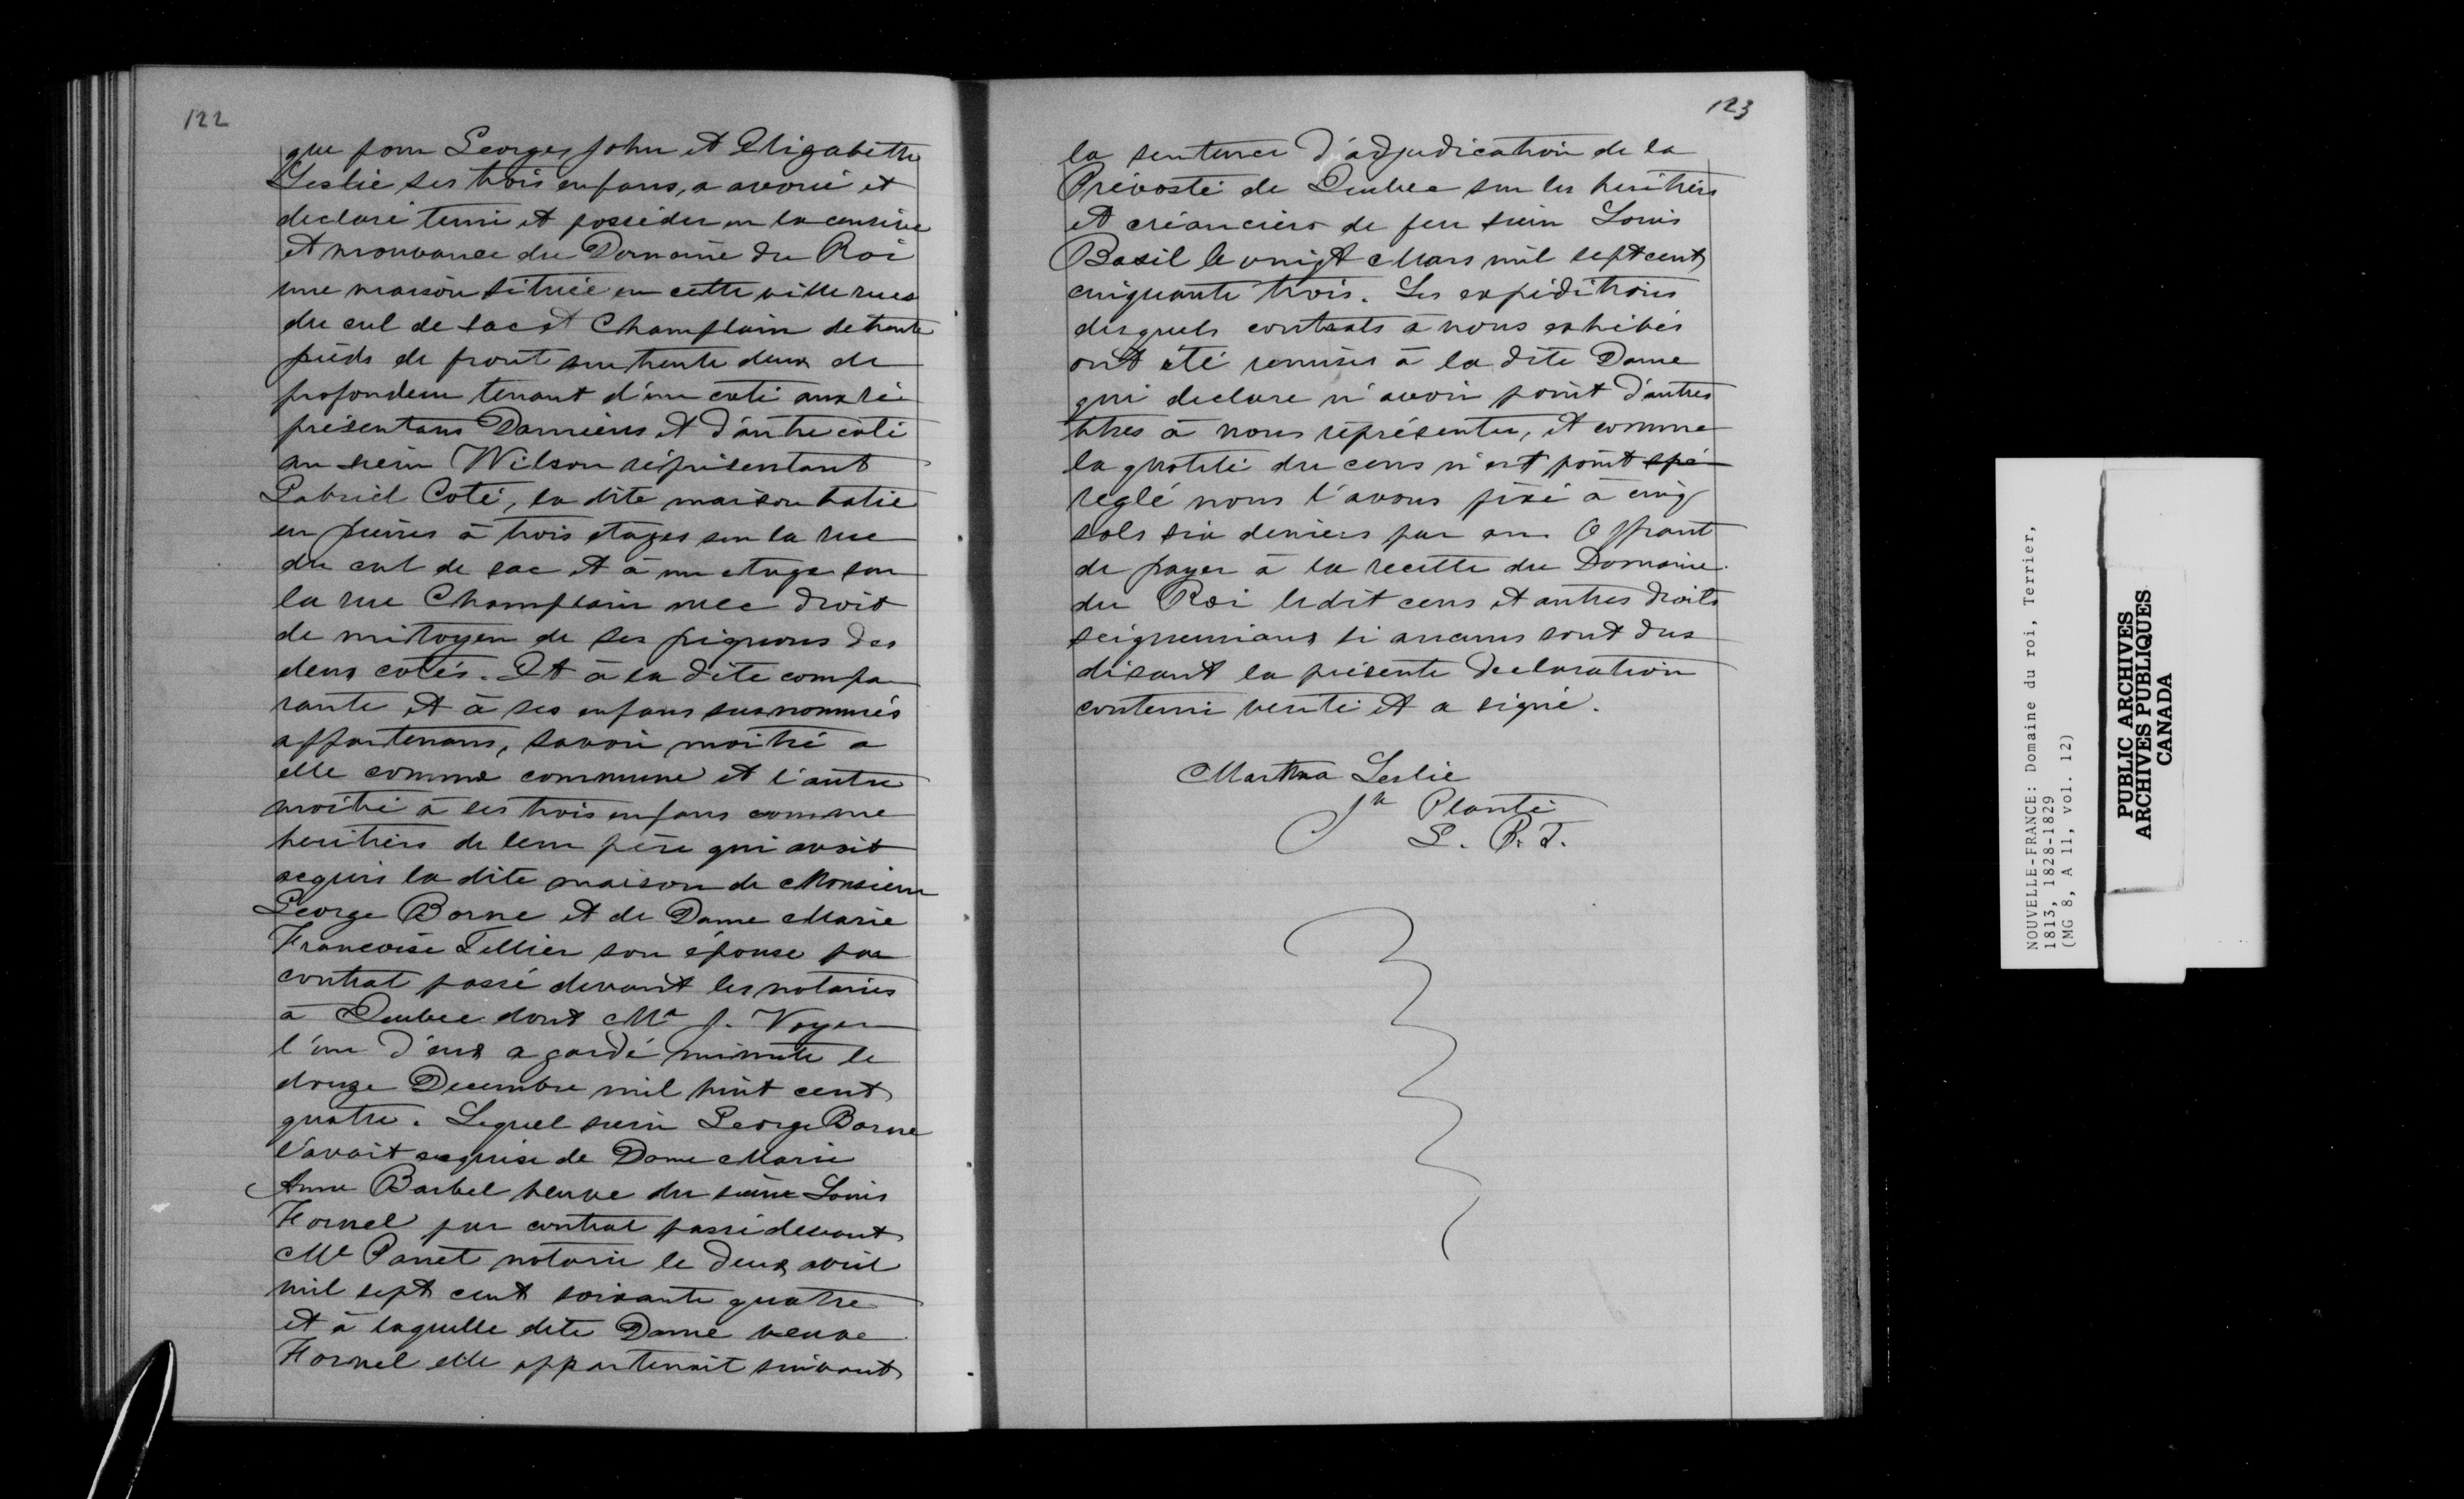 122
que pour George, John et Elizabette
Leslie ses trois enfans, a avoué et
declaré tenir et posséder en la censive
et mouvance du Domaine du Roi
une maison située en cette ville rues
du cul de sac et Champlain de trente
pieds de front sur trente deux de
profondeur tenant d'un coté aux ré
présentans Damiens et d'autre coté
au sieur Wilson réprésentant
Gabriel Coté, la dite maison batie
en pierres à trois etages sur la rue
du cul de sac et à un etage sur
la rue Champlain avec droit
de mitoyen de ses pignons des
deux cotés. Et à la dite compa
rante et à ses enfans susnommés
appartenans, savoir moitié a
elle comme commune et l'autre
moitié à ses trois enfans comme
heritiers de leur père qui avait
acquis la dite maison de Monsieur
George Borne et de Dame Marie
Francoise Tellier son épouse par
contrat passé devant les notaires
a Quebec dont Me J. Voyer
l'un d'eux a gardé minute le
douze Decembre mil huit cent
quatre. Lequel sieur George Borne
l'avait acquise de Dame Marie
Anne Barbel veuve du sieur Louis
Fornel par contrat passé devant
Me Panet notaire le deux avril
mil sept cent soixante quatre
et à laquelle dite Dame veuve
Fornel elle appartenait suivant
123
la sentence d'adjudication de la
Prévosté de Quebec sur les heritiers
et créanciers de feu sieur Louis
Basil le vingt Mars mil sept cent
cinquante trois. Les expéditions
desquels contrats à nous exhibés
ont été remises à la dite Dame
qui declare n'avoir point d'autres
titres à nous réprésenter, et comme
la quotité du cens n'est point spé
reglé nous l'avons fixé à cinq
sols six deniers par an. Offrant
de payer à la recette du Domaine
du Roi ledit cens et autres droits
seigneuriaux si aucuns sont dus
disant la présente declaration
contenir verité et a signé.
Martha Leslie
Jh Planté
G. P. T.
NOUVELLE-FRANCE: Domaine du roi, Terrier,
1813, 1828-1829
(MG 8, A 11, vol. 12)
PUBLIC ARCHIVES
ARCHIVES PUBLIQUES
CANADA